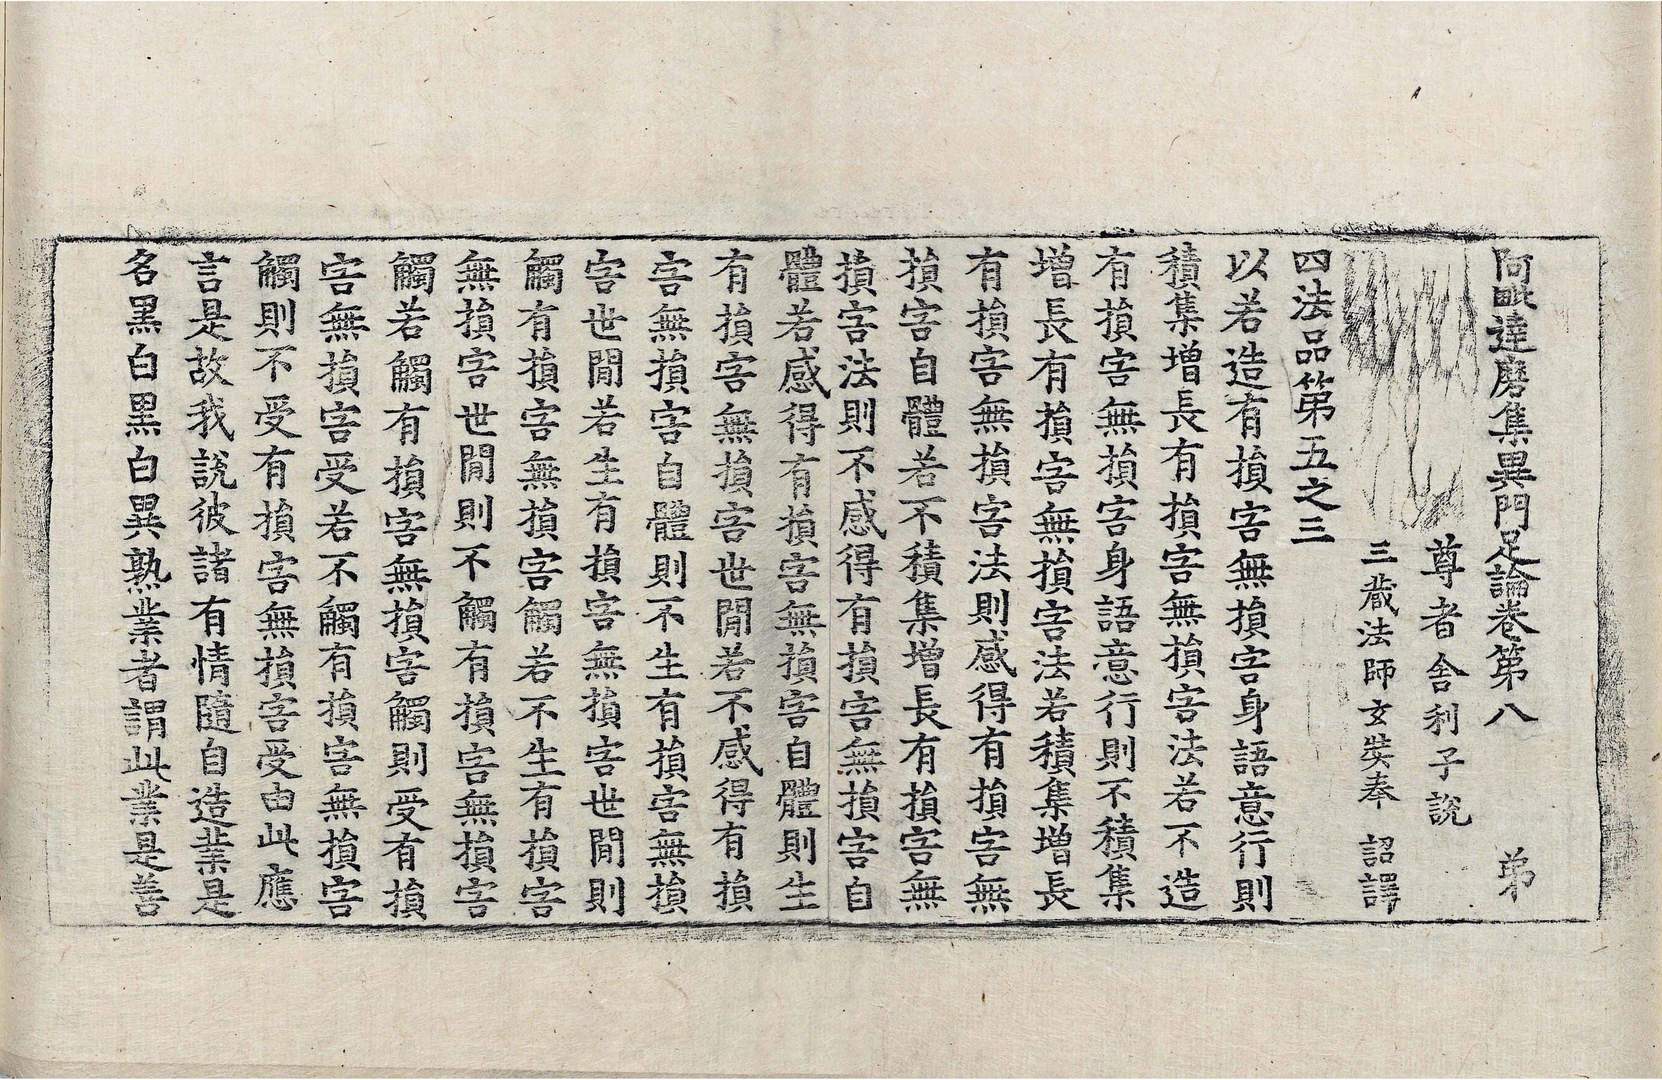 阿毗達磨集異門足論卷第八 弟
尊者舍利子說
三藏法師玄奘奉 詔譯
四法品第五之三
以若造有損害無損害身語意行則
積集增長有損害無損害法若不造
有損害無損害身語意行則不積集
增長有損害無損害法若積集增長
有損害無損害法則感得有損害無
損害自體若不積集增長有損害無
損害法則不感得有損害無損害自
體若感得有損害無損害自體則生
有損害無損害世閒若不感得有損
害無損害自體則不生有損害無損
害世閒若生有損害無損害世閒則
觸有損害無損害觸若不生有損害
無損害世閒則不觸有損害無損害
觸若觸有損害無損害觸則受有損
害無損害受若不觸有損害無損害
觸則不受有損害無損害受由此應
言是故我說彼諸有情隨自造業是
名黑白黑白異熟業者謂此業是善